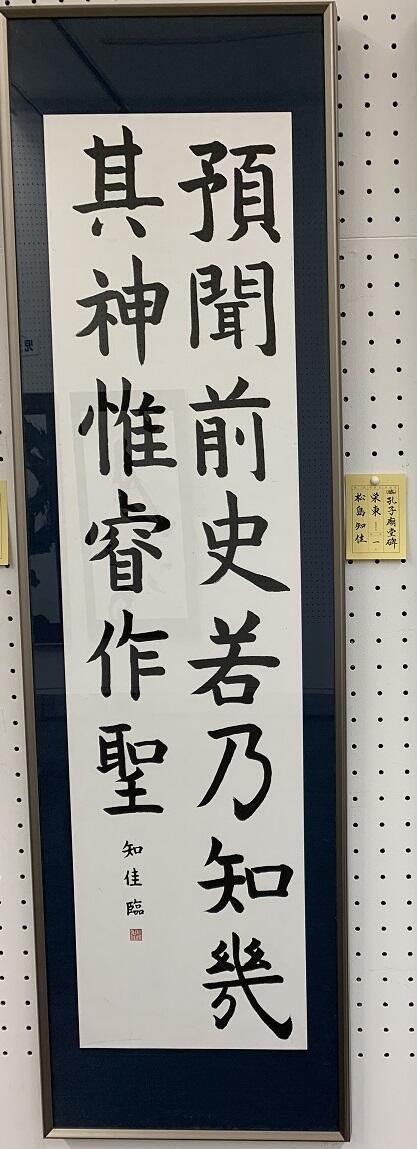 預聞前史若乃知幾
其神惟睿作聖
知佳臨
臨 孔子廟堂碑
栄東 一
松島知佳